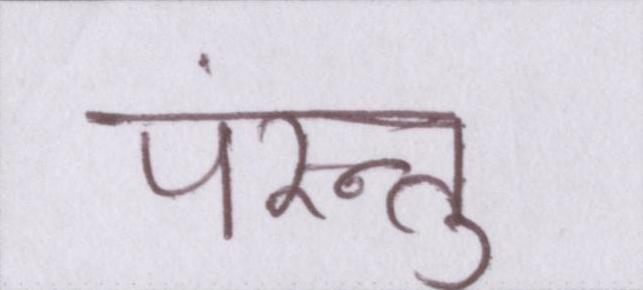 पंरन्तु